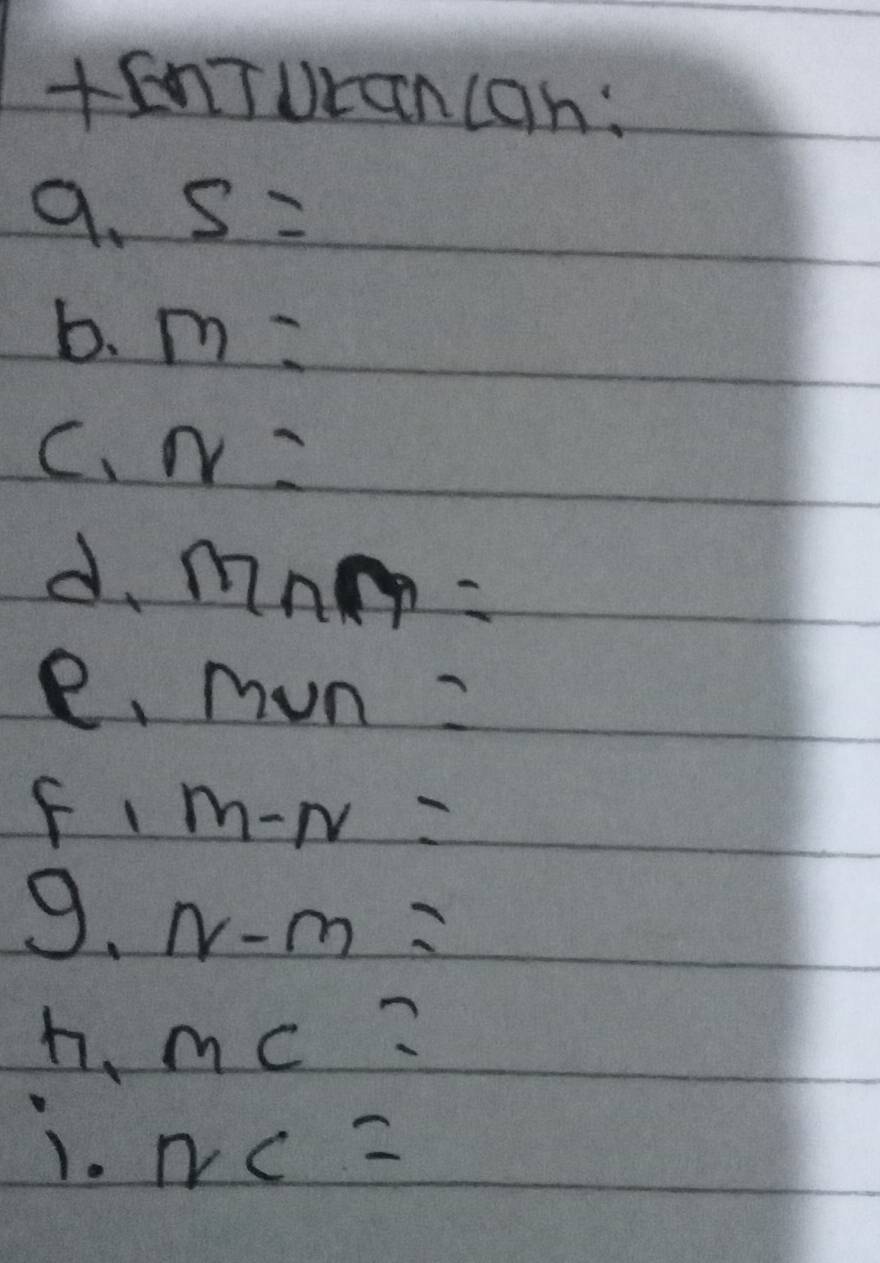 tEnTUkanlah:
a. S =
b. m =
c. N =
d. m n n =
e. mun =
f. m-N =
g. N-m =
h. m c =
i. N c =